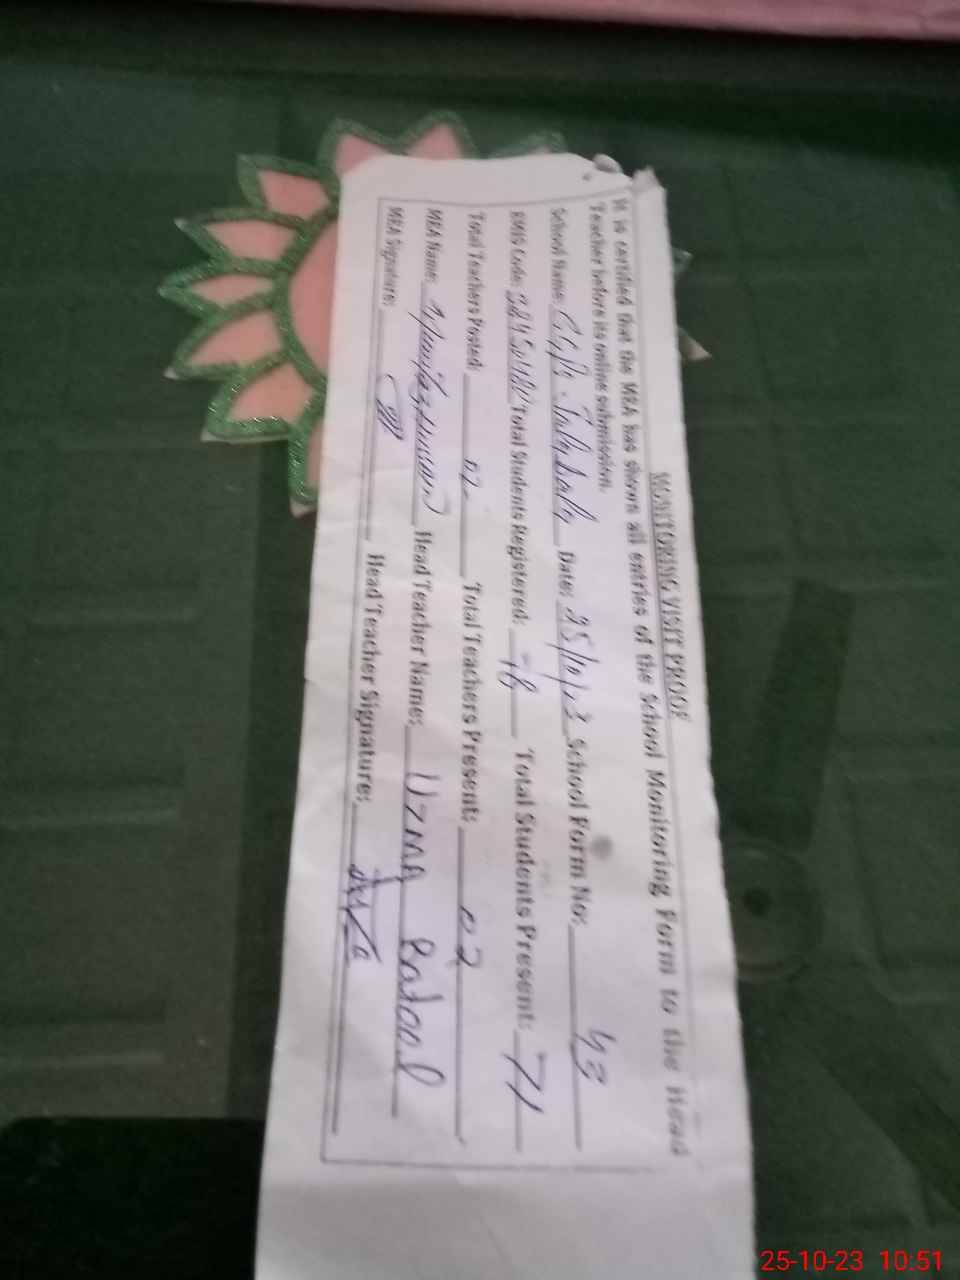 MONITORING VISIT PROOF
It is certified that the MEA has shown all entries of the School Monitoring Form to the Head
Teacher before its online submission.
School Name: Date: 25/10/23 School Form No: 43
EMIS Code: Total Students Registered: 78 Total Students Present: 71
Total Teachers Posted: 02 Total Teachers Present: 02
MEA Name: Head Teacher Name: Uzma Batool
MEA Signature: Head Teacher Signature:
25-10-23 10:51